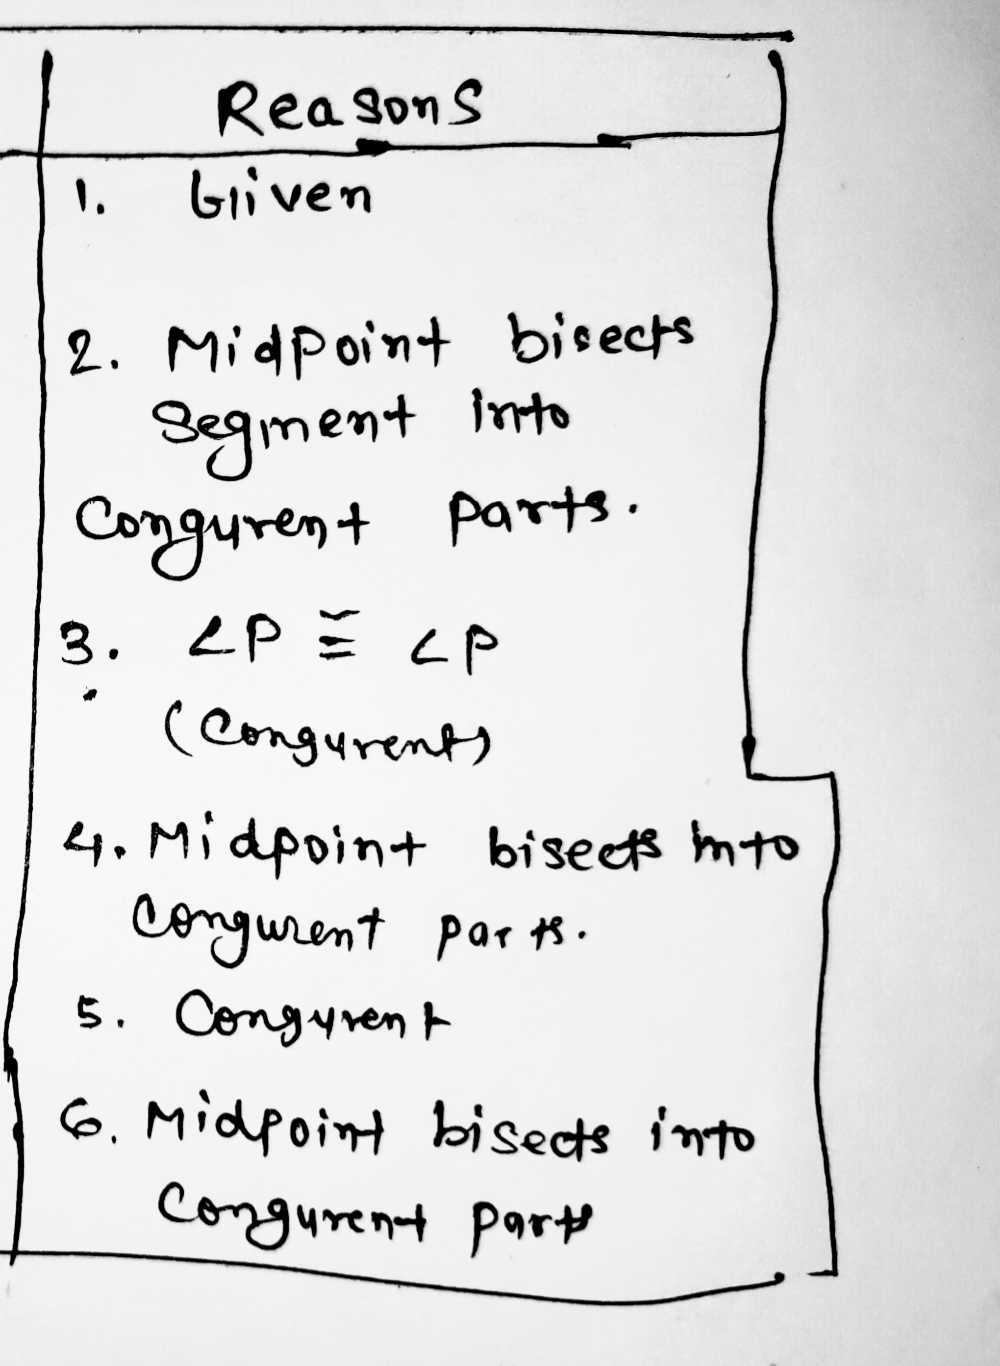 Reasons
1. Given
2. Midpoint bisects
Segment into
Congurent Parts.
3. ∠P ≅ ∠P
(Congurent)
4. Midpoint bisects into
Congurent parts.
5. Congurent
6. Midpoint bisects into
Congurent parts